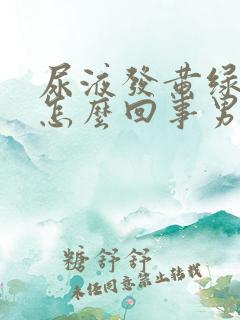 尿液發黃綠
怎麼回事男
糖舒舒
未经同意禁止转载